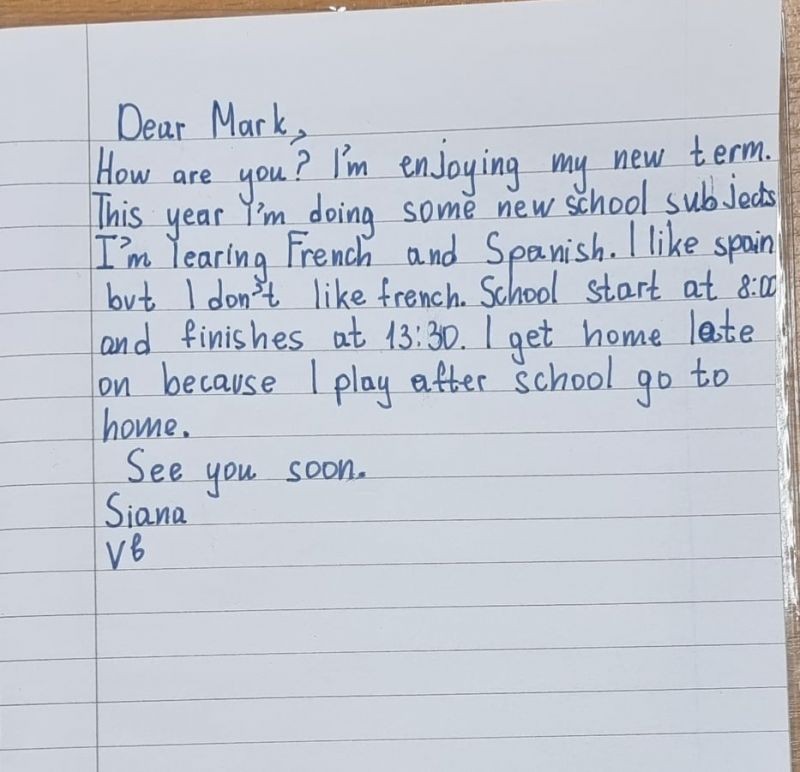 Dear Mark,
How are you? I'm enjoying my new term.
This year I'm doing some new school subjects
I'm learing French and Spanish. I like spain
but I don't like french. School start at 8:00
and finishes at 13:30. I get home late
on because I play after school go to
home.
See you soon.
Siana
Vб